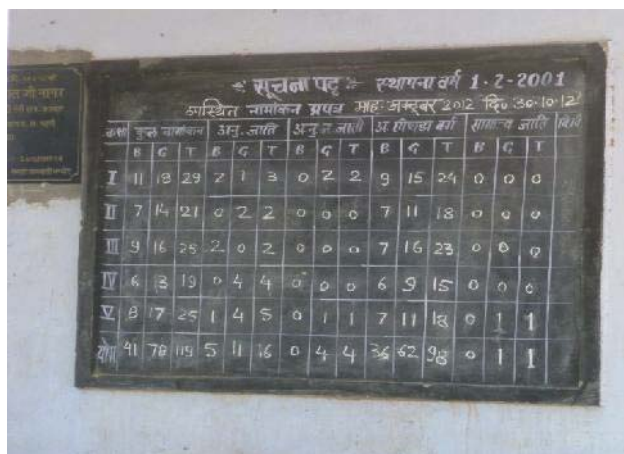 सूचना पट्ट स्थापना वर्ष 1-2-2001
उपस्थित नामांकन प्रपत्र माह: अक्टूबर 2012 दि० 30-10-12
कक्षा कुल नामांकन अनु. जाति अनु. ज. जाती अ. पिछड़ा वर्ग सामान्य जाति
B G T B G T B G T B G T B G T
I 11 18 29 2 1 3 0 2 2 9 15 24 0 0 0
II 7 14 21 0 2 2 0 0 0 7 11 18 0 0 0
III 9 16 25 2 0 2 0 0 0 7 16 23 0 0 0
IV 6 13 19 0 4 4 0 0 0 6 9 15 0 0 0
V 8 17 25 1 4 5 0 1 1 7 11 18 0 1 1
योग 41 78 119 5 11 16 0 4 4 36 62 98 0 1 1